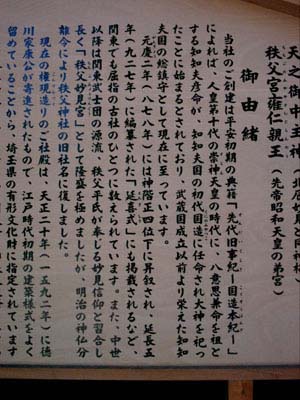 天之御中主神（北辰妙見と同神）
秩父宮雍仁親王（先帝昭和天皇の弟宮）
御由緒
当社のご創建は平安初期の典籍「先代旧事紀－国造本紀－」
によれば、人皇第十代の崇神天皇の時代に、八意思兼命を祖と
する知知夫彦命が、知知夫国の初代国造に任命され大神を祀っ
たことに始まるとされており、武蔵国成立以前より栄えた知知
夫国の総鎮守として現在に至っています。
元慶二年（八七八年）には神階正四位下に昇叙され、延長五
年（九二七年）に編纂された「延喜式」にも掲載されるなど、
関東でも屈指の古社のひとつに数えられています。また、中世
以降は関東武士団の源流、秩父平氏が奉じる妙見信仰と習合し
長く「秩父妙見宮」として隆盛を極めましたが、明治の神仏分
離令により秩父神社の旧社名に復しました。
現在の権現造りのご社殿は、天正二十年（一五九二年）に徳
川家康公が寄進されたもので、江戸時代初期の建築様式をよく
留めていることから、埼玉県の有形文化財に指定されています